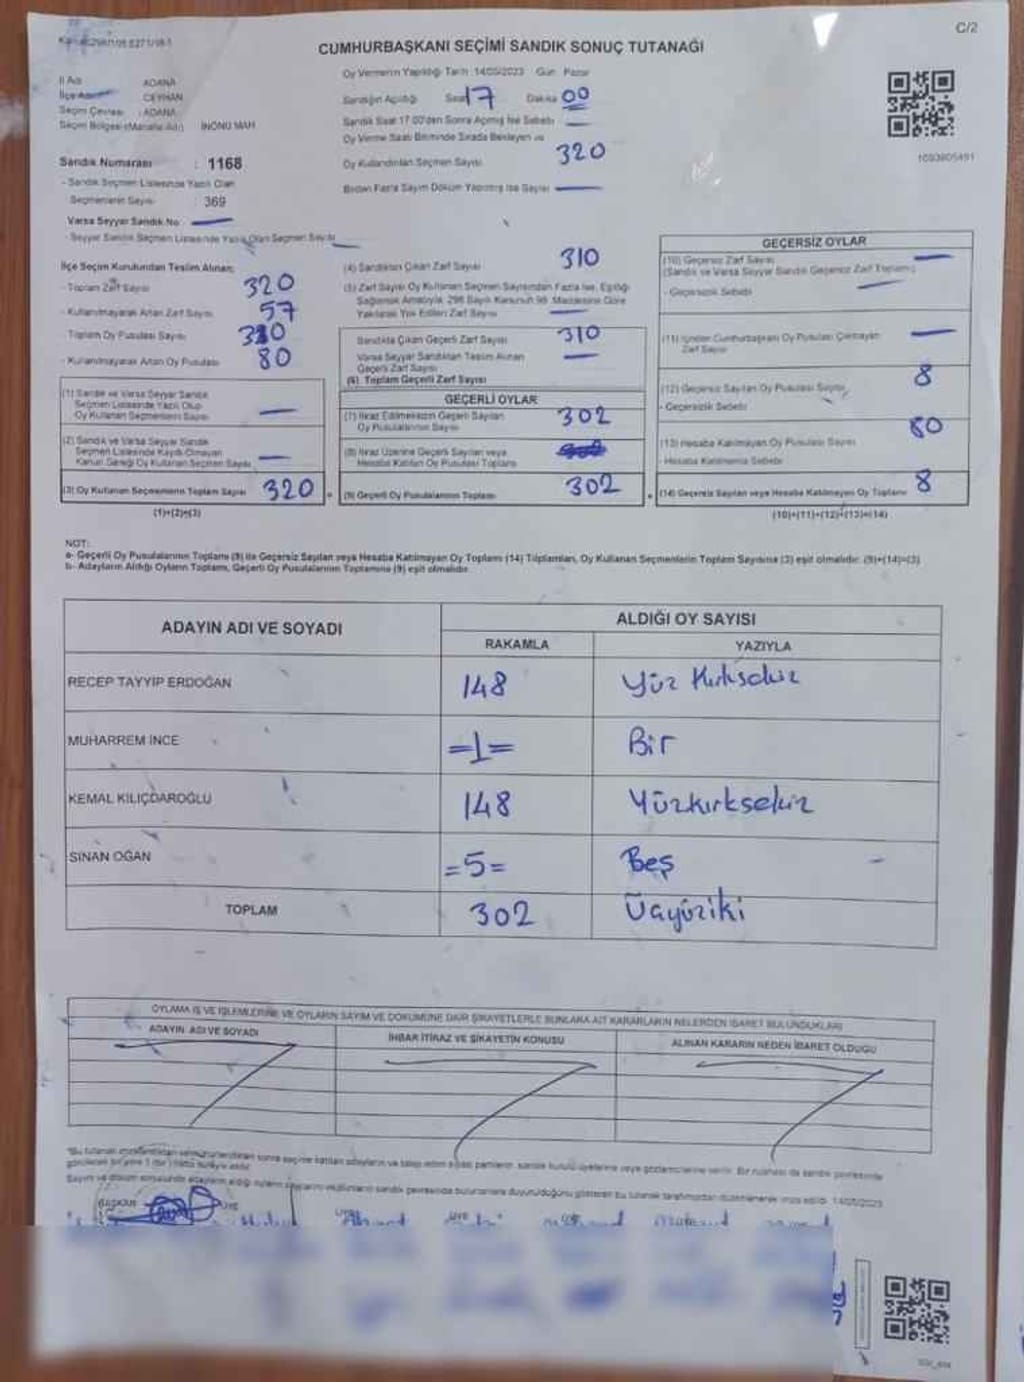 C/2
CUMHURBAŞKANI SEÇİMİ SANDIK SONUÇ TUTANAĞI
İl Adı ADANA
İlçe Adı CEYHAN
Seçim Çevresi : ADANA
Seçim Bölgesi (Mahalle Adı) İNÖNÜ MAH
Oy Vermenin Yapıldığı Tarih 14/05/2023 Gün Pazar
Sandığın Açıldığı Saat 17 Dakika 00
Sandık Saat 17.00'den Sonra Açılmış İse Sebebi
Oy Verme Saati Bitiminde Sırada Bekleyen ve
Oy Kullandırılan Seçmen Sayısı 320
Birden Fazla Sayım Döküm Yapılmış İse Sayısı
1693805491
Sandık Numarası : 1168
- Sandık Seçmen Listesinde Yazılı Olan
Seçmenlerin Sayısı : 369
Varsa Seyyar Sandık No
- Seyyar Sandık Seçmen Listesinde Yazılı Olan Seçmen Sayısı
İlçe Seçim Kurulundan Teslim Alınan;
- Toplam Zarf Sayısı 320
- Kullanılmayarak Artan Zarf Sayısı 57
- Toplam Oy Pusulası Sayısı
- Kullanılmayarak Artan Oy Pusulası 80
(1) Sandık ve Varsa Seyyar Sandık
Seçmen Listesinde Yazılı Olup
Oy Kullanan Seçmenlerin Sayısı
(2) Sandık ve Varsa Seyyar Sandık
Seçmen Listesinde Kaydı Olmayan
Kanun Gereği Oy Kullanan Seçmen Sayısı
(3) Oy Kullanan Seçmenlerin Toplam Sayısı 320
(1)+(2)=(3)
(4) Sandıktan Çıkan Zarf Sayısı 310
(5) Zarf Sayısı Oy Kullanan Seçmen Sayısından Fazla İse, Eşitliği
Sağlamak Amacıyla, 298 Sayılı Kanunun 98. Maddesine Göre
Yakılarak Yok Edilen Zarf Sayısı
Sandıkta Çıkan Geçerli Zarf Sayısı 310
Varsa Seyyar Sandıktan Teslim Alınan
Geçerli Zarf Sayısı
(6) Toplam Geçerli Zarf Sayısı
GEÇERLİ OYLAR
(7) İtiraz Edilmeksizin Geçerli Sayılan
Oy Pusulalarının Sayısı 302
(8) İtiraz Üzerine Geçerli Sayılan veya
Hesaba Katılan Oy Pusulası Toplamı
(9) Geçerli Oy Pusulalarının Toplamı 302
GEÇERSİZ OYLAR
(10) Geçersiz Zarf Sayısı
(Sandık ve Varsa Seyyar Sandık Geçersiz Zarf Toplamı)
- Geçersizlik Sebebi
(11) İçinden Cumhurbaşkanı Oy Pusulası Çıkmayan
Zarf Sayısı
(12) Geçersiz Sayılan Oy Pusulası Sayısı 8
- Geçersizlik Sebebi
(13) Hesaba Katılmayan Oy Pusulası Sayısı 80
- Hesaba Katılmama Sebebi
(14) Geçersiz Sayılan veya Hesaba Katılmayan Oy Toplamı 8
(10)+(11)+(12)+(13)=(14)
NOT:
a- Geçerli Oy Pusulalarının Toplamı (9) ile Geçersiz Sayılan veya Hesaba Katılmayan Oy Toplamı (14) Toplamları, Oy Kullanan Seçmenlerin Toplam Sayısına (3) eşit olmalıdır. (9)+(14)=(3)
b- Adayların Aldığı Oyların Toplamı, Geçerli Oy Pusulalarının Toplamına (9) eşit olmalıdır.
ADAYIN ADI VE SOYADI ALDIĞI OY SAYISI
RAKAMLA YAZIYLA
RECEP TAYYİP ERDOĞAN 148 Yüz Kırksekiz
MUHARREM İNCE =1= Bir
KEMAL KILIÇDAROĞLU 148 Yüzkırksekiz
SİNAN OĞAN =5= Beş
TOPLAM 302 Üçyüziki
OYLAMA İŞ VE İŞLEMLERİNE VE OYLARIN SAYIM VE DÖKÜMÜNE DAİR ŞİKAYETLERLE BUNLARA AİT KARARLARIN NELERDEN İBARET BULUNDUKLARI
ADAYIN ADI VE SOYADI İHBAR İTİRAZ VE ŞİKAYETİN KONUSU ALINAN KARARIN NEDEN İBARET OLDUĞU
BAŞKAN ÜYE ÜYE ÜYE